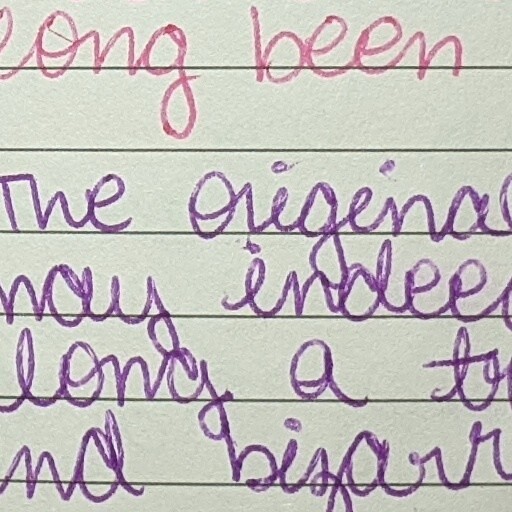 long been
The origina
may indeed
long a t
nd bizarr